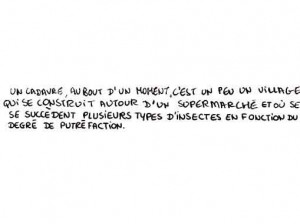 UN CADAVRE, AU BOUT D'UN MOMENT, C'EST UN PEU UN VILLAGE
QUI SE CONSTRUIT AUTOUR D'UN SUPERMARCHÉ ET OÙ SE
SE SUCCÈDENT PLUSIEURS TYPES D'INSECTES EN FONCTION DU
DEGRÉ DE PUTRÉFACTION.